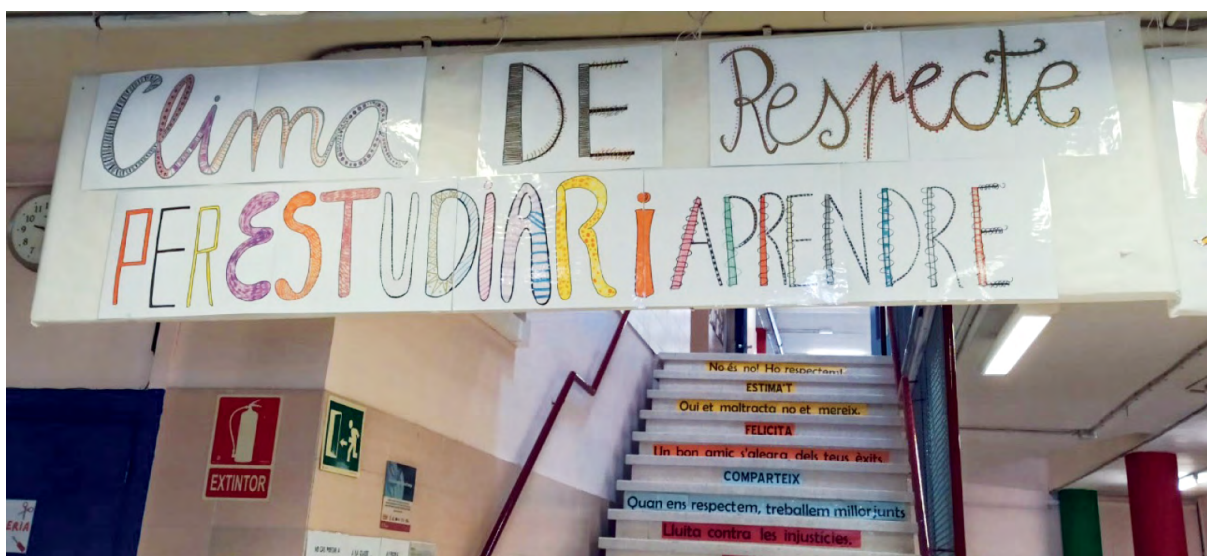 Clima DE Respecte
PER ESTUDIAR i APRENDRE
10
9
8
No és no! Ho respectem!
ESTIMA'T
Qui et maltracta no et mereix.
FELICITA
Un bon amic s'alegra dels teus èxits
COMPARTEIX
Quan ens respectem, treballem millor junts
Lluita contra les injustícies.
EXTINTOR
ERIA